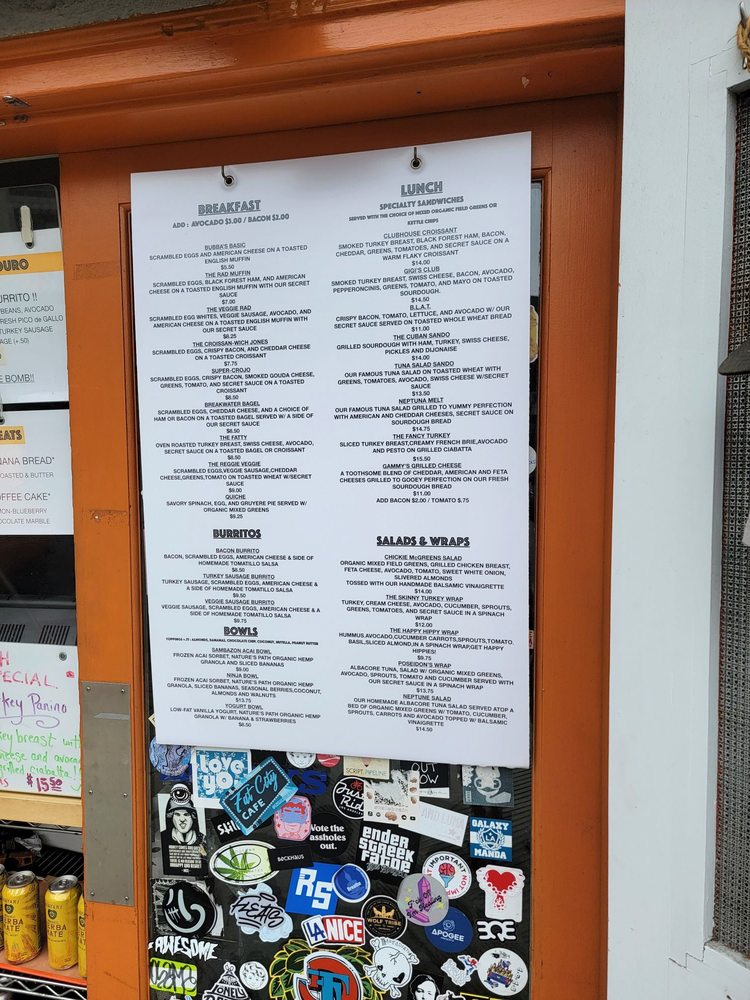 BREAKFAST
ADD : AVOCADO $3.00 / BACON $2.00
BUBBA'S BASIC
SCRAMBLED EGGS AND AMERICAN CHEESE ON A TOASTED
ENGLISH MUFFIN
$5.50
THE RAD MUFFIN
SCRAMBLED EGGS, BLACK FOREST HAM, AND AMERICAN
CHEESE ON A TOASTED ENGLISH MUFFIN WITH OUR SECRET
SAUCE
$7.00
THE VEGGIE RAD
SCRAMBLED EGG WHITES, VEGGIE SAUSAGE, AVOCADO, AND
AMERICAN CHEESE ON A TOASTED ENGLISH MUFFIN WITH
OUR SECRET SAUCE
$8.25
THE CROISSAN-WICH JONES
SCRAMBLED EGGS, CRISPY BACON, AND CHEDDAR CHEESE
ON A TOASTED CROISSANT
$7.75
SUPER-CROJO
SCRAMBLED EGGS, CRISPY BACON, SMOKED GOUDA CHEESE,
GREENS, TOMATO, AND SECRET SAUCE ON A TOASTED
CROISSANT
$8.50
BREAKWATER BAGEL
SCRAMBLED EGGS, CHEDDAR CHEESE, AND A CHOICE OF
HAM OR BACON ON A TOASTED BAGEL SERVED W/ A SIDE OF
OUR SECRET SAUCE
$8.50
THE FATTY
OVEN ROASTED TURKEY BREAST, SWISS CHEESE, AVOCADO,
SECRET SAUCE ON A TOASTED BAGEL OR CROISSANT
$8.50
THE REGGIE VEGGIE
SCRAMBLED EGGS,VEGGIE SAUSAGE,CHEDDAR
CHEESE,GREENS,TOMATO ON TOASTED WHEAT W/SECRET
SAUCE
$9.00
QUICHE
SAVORY SPINACH, EGG, AND GRUYERE PIE SERVED W/
ORGANIC MIXED GREENS
$9.25
BURRITOS
BACON BURRITO
BACON, SCRAMBLED EGGS, AMERICAN CHEESE & SIDE OF
HOMEMADE TOMATILLO SALSA
$8.50
TURKEY SAUSAGE BURRITO
TURKEY SAUSAGE, SCRAMBLED EGGS, AMERICAN CHEESE &
A SIDE OF HOMEMADE TOMATILLO SALSA
$9.50
VEGGIE SAUSAGE BURRITO
VEGGIE SAUSAGE, SCRAMBLED EGGS, AMERICAN CHEESE & A
SIDE OF HOMEMADE TOMATILLO SALSA
$9.75
BOWLS
ALMONDS, BANANAS, CHOCOLATE CHIP, COCONUT, NUTELLA, PEANUT BUTTER
SAMBAZON ACAI BOWL
FROZEN ACAI SORBET, NATURE'S PATH ORGANIC HEMP
GRANOLA AND SLICED BANANAS
$9.00
NINJA BOWL
FROZEN ACAI SORBET, NATURE'S PATH ORGANIC HEMP
GRANOLA, SLICED BANANAS, SEASONAL BERRIES,COCONUT,
ALMONDS AND WALNUTS
$13.75
YOGURT BOWL
LOW-FAT VANILLA YOGURT, NATURE'S PATH ORGANIC HEMP
GRANOLA W/ BANANA & STRAWBERRIES
$8.50
LUNCH
SPECIALTY SANDWICHES
SERVED WITH THE CHOICE OF MIXED ORGANIC FIELD GREENS OR
KETTLE CHIPS
CLUBHOUSE CROISSANT
SMOKED TURKEY BREAST, BLACK FOREST HAM, BACON,
CHEDDAR, GREENS, TOMATOES, AND SECRET SAUCE ON A
WARM FLAKY CROISSANT
$14.00
GIGI'S CLUB
SMOKED TURKEY BREAST, SWISS CHEESE, BACON, AVOCADO,
PEPPERONCINIS, GREENS, TOMATO, AND MAYO ON TOASTED
SOURDOUGH.
$14.50
B.L.A.T.
CRISPY BACON, TOMATO, LETTUCE, AND AVOCADO W/ OUR
SECRET SAUCE SERVED ON TOASTED WHOLE WHEAT BREAD
$11.00
THE CUBAN SANDO
GRILLED SOURDOUGH WITH HAM, TURKEY, SWISS CHEESE,
PICKLES AND DIJONAISE
$14.00
TUNA SALAD SANDO
OUR FAMOUS TUNA SALAD ON TOASTED WHEAT WITH
GREENS, TOMATOES, AVOCADO, SWISS CHEESE W/SECRET
SAUCE
$13.50
NEPTUNA MELT
OUR FAMOUS TUNA SALAD GRILLED TO YUMMY PERFECTION
WITH AMERICAN AND CHEDDAR CHEESES, SECRET SAUCE ON
SOURDOUGH BREAD
$14.75
THE FANCY TURKEY
SLICED TURKEY BREAST,CREAMY FRENCH BRIE,AVOCADO
AND PESTO ON GRILLED CIABATTA
$15.50
GAMMY'S GRILLED CHEESE
A TOOTHSOME BLEND OF CHEDDAR, AMERICAN AND FETA
CHEESES GRILLED TO GOOEY PERFECTION ON OUR FRESH
SOURDOUGH BREAD
$11.00
ADD BACON $2.00 / TOMATO $.75
SALADS & WRAPS
CHICKIE McGREENS SALAD
ORGANIC MIXED FIELD GREENS, GRILLED CHICKEN BREAST,
FETA CHEESE, AVOCADO, TOMATO, SWEET WHITE ONION,
SLIVERED ALMONDS
TOSSED WITH OUR HANDMADE BALSAMIC VINAIGRETTE
$14.00
THE SKINNY TURKEY WRAP
TURKEY, CREAM CHEESE, AVOCADO, CUCUMBER, SPROUTS,
GREENS, TOMATOES, AND SECRET SAUCE IN A SPINACH
WRAP
$12.00
THE HAPPY HIPPY WRAP
HUMMUS,AVOCADO,CUCUMBER CARROTS,SPROUTS,TOMATO,
BASIL,SLICED ALMOND,IN A SPINACH WRAP,GET HAPPY
HIPPIES!
$9.75
POSEIDON'S WRAP
ALBACORE TUNA, SALAD W/ ORGANIC MIXED GREENS,
AVOCADO, SPROUTS, TOMATO AND CUCUMBER SERVED WITH
OUR SECRET SAUCE IN A SPINACH WRAP
$13.75
NEPTUNE SALAD
OUR HOMEMADE ALBACORE TUNA SALAD SERVED ATOP A
BED OF ORGANIC MIXED GREENS W/ TOMATO, CUCUMBER,
SPROUTS, CARROTS AND AVOCADO TOPPED W/ BALSAMIC
VINAIGRETTE
$14.50
DURO
URRITO !!
BEANS, AVOCADO
FRESH PICO de GALLO
TURKEY SAUSAGE
AGE (+.50)
BOMB!!
EATS
NANA BREAD*
OASTED & BUTTER
OFFEE CAKE*
MON-BLUEBERRY
OCOLATE MARBLE
PECIAL
key Panino
key breast with
heese and avoca
grilled ciabatta
$15.50
ERBA
ATE
love
up
Fat City
CAFE
SCRIPT PIPELINE
OUT
NOW
Just
Ride
Vote the
assholes
out.
BOCKHAUS
ENDER
STREET
FATOE
AND LUKE
GALAXY
LA
MANDA
IMPORTANT
RS
breathe
LA NICE
WOLF TRIBE
APOGEE
AWESOME
LONELY